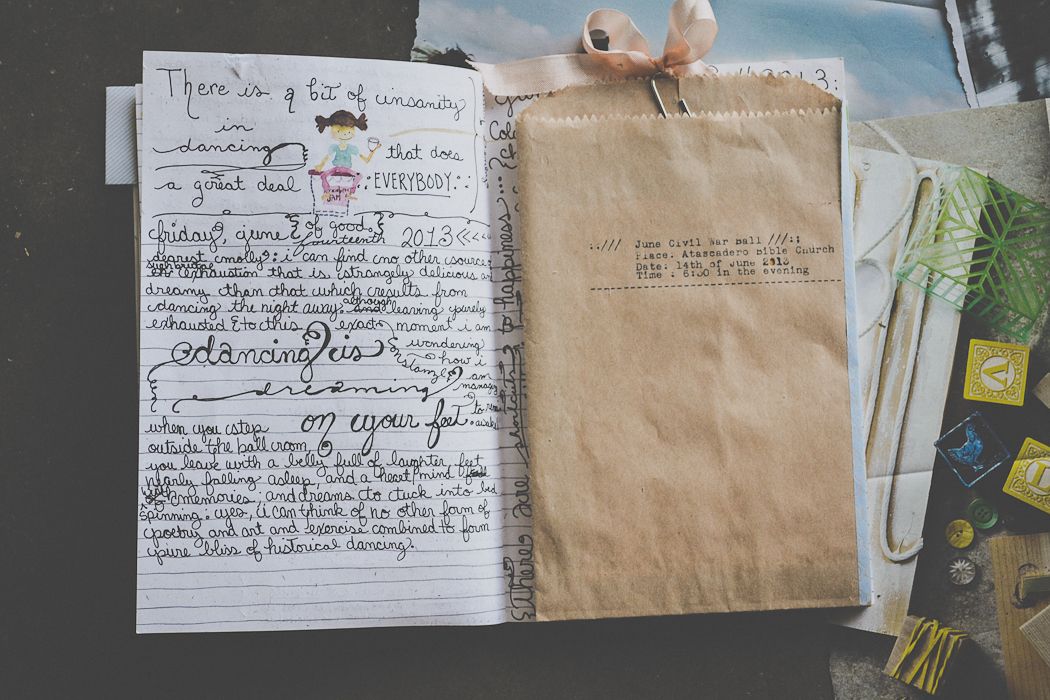 There is a bit of insanity
in
dancing
that does
a great deal
EVERYBODY
JAM
of good.
friday, june fourteenth 2013 <<<
dearest emolly: i can find no other source
exhaustion that is strangely delicious
dreamy than that which results from
dancing the night away. although leaving purely
exhausted & to this exact moment i am
wondering
how i
am
dancing is
dreaming
on your feet
when you step
outside the ball room,
you leave with a belly full of laughter, feet
nearly falling asleep, and a heart/mind
memories, and dreams to tuck into bed
spinning: yes, i can think of no other form of
poetry and art and exercise combined to form
pure bliss of historical dancing.
There are shortcuts to happiness...
2013:
:.///  June Civil War Ball ///::
Place: Atascadero Bible Church
Date: 14th of June 2013
Time : 6:30 in the evening